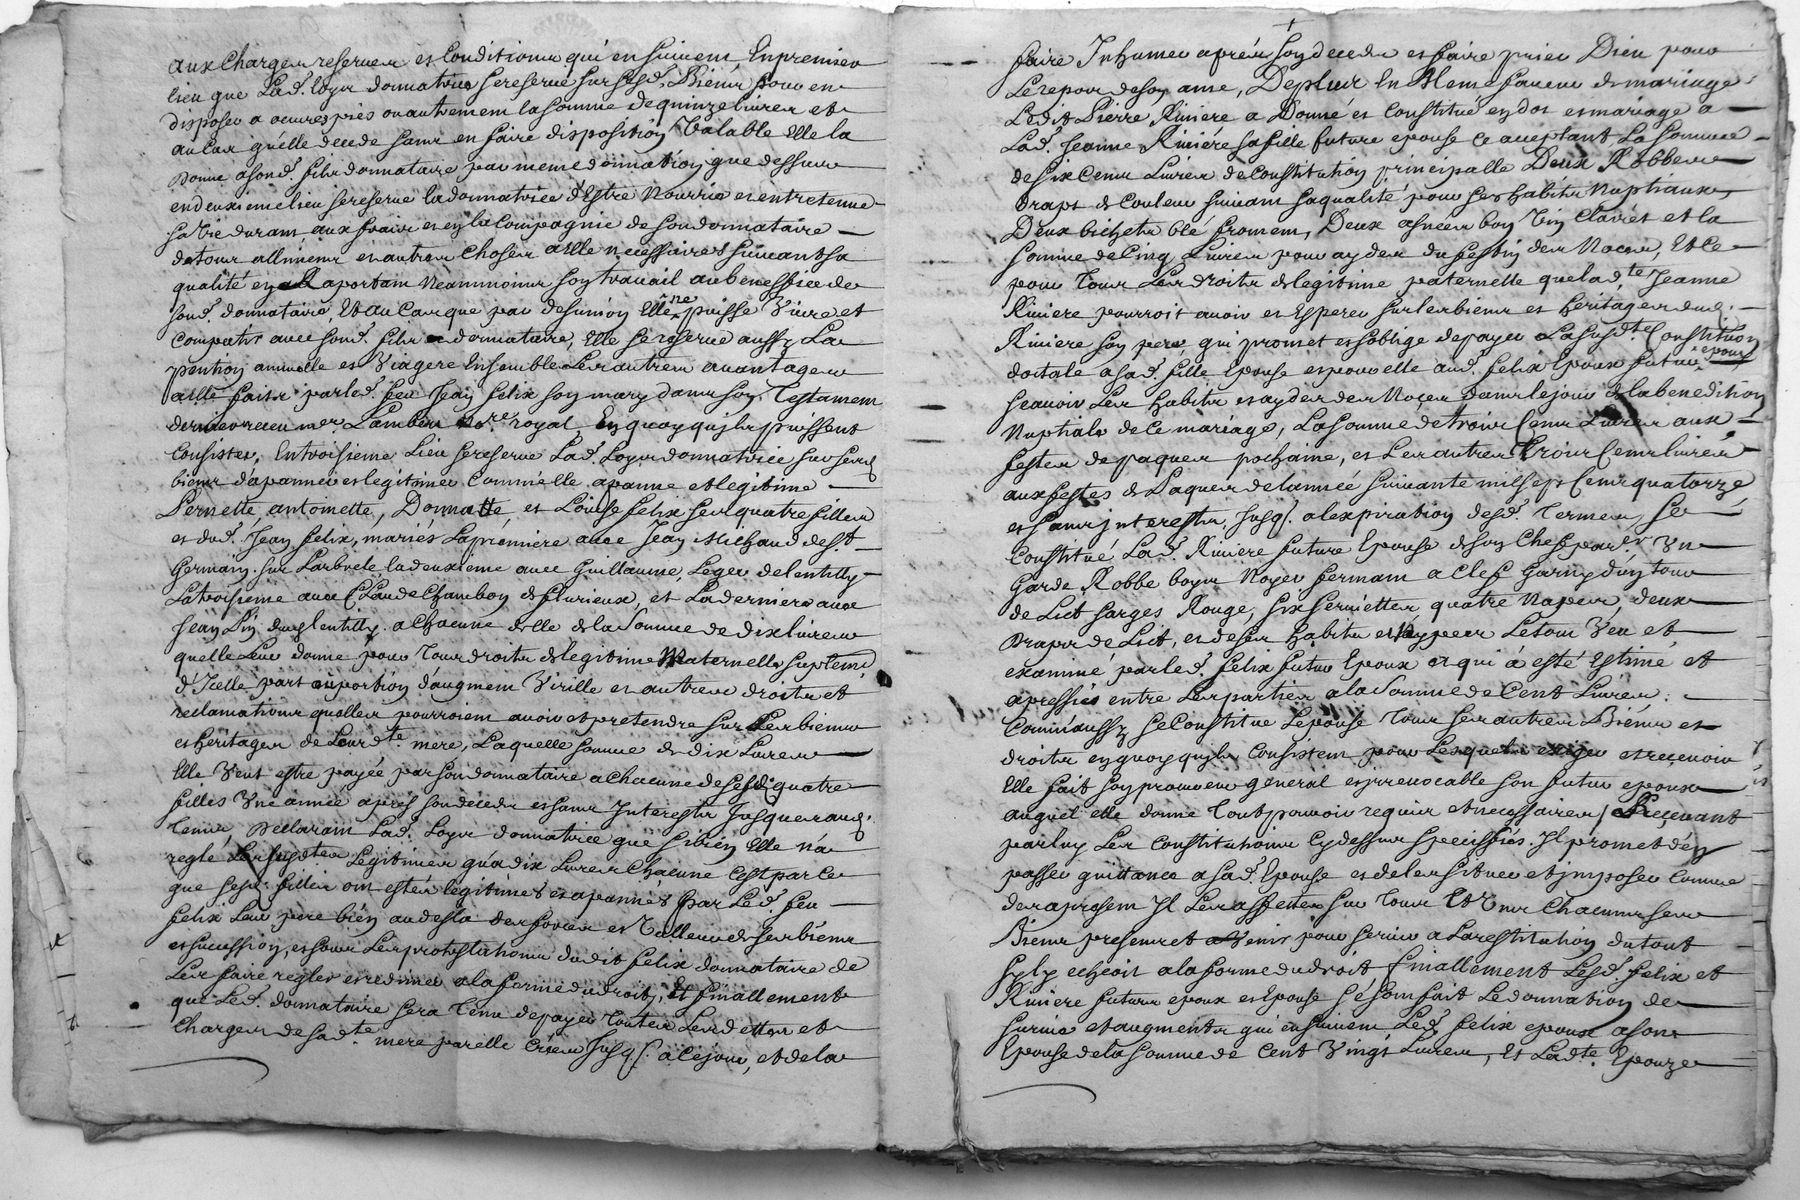 aux Charges reserves et Conditions qui ensuivent, En premier
lieu que Lad. loyre donnatrice se reserve sur sesd. Biens pour en
disposer a oeuvres pies ou autrement la somme de quinze livres et
au cas qu'elle decede sans en faire disposition Valable Elle la
donne a sond. fils donnataire par meme donnation que dessus
en deuxieme lieu se reserve la donnatrice d'Estre Nourrie et entretenue
sa Vie durant aux fraix et en la Compagnie de son donnataire
de tous alliments et autres Choses a Elle necessaires suivant sa
qualité en aportant Neanmoins son travail au benefice de
sond. donnataire, Et au Cas que par desunion Elle ne puisse Vivre et
compatir avec sond. fils donnataire, Elle se reserve aussy La
pention annuelle et Viagere Ensemble Les autres avantages
a Elle faits par led. feu Jean felix son mary dans son Testament
dernier receu me. Lambert no.re royal En quoy qu'ils puissent
Consister, En troisieme Lieu se reserve Lad. Loyre donnatrice sur sesd.
biens d'apanner et legitimer Comme elle apanne et legitime
Pernette, antoinette, Donnatte, et Louise felix ses quatre filles
et dud. Jean felix, mariés La premiere avec Jean Michaud de St.
Germain sur Larbrele la deuxieme avec Guillaume Leger de lentilly
La troisieme avec Claude Chambon de fleurieux, et La derniere avec
Jean Pin dud. lentilly a Chacune d'elle de la Somme de dix livres
qu'elle Leur donne pour Tous droits de legitime Maternelle suplement
d'Icelle part et portion d'augment Virille et autres droits et
reclamations qu'elles pourroient avoir et pretendre sur Les biens
et heritages de Leurd.te mere, Laquelle somme de dix Livres
Elle Veut estre payée par son donnataire a Chacune de sesd. quatre
filles Une année apres son decede et sans Interests Jusques aud.
Terme, Declarant Lad. Loyre donnatrice que sy bien Elle n'a
reglé Les susd.tes Legitimes qu'a dix Livres Chacune C'est parce
que sesd. filles ont estés legitimes et apannés par Led. feu
felix Leur pere bien audela des forces et Valleur de ses biens
et succession, et sous Les protestations dudit felix donnataire de
Les faire regler et reduire a la forme du droit, Et finallement
que Led. donnataire sera Tenu de payer Toutes Les dettes et
Charges de sad.te mere par elle Crées Jusq. a Ce jour, et de la
faire Inhumer aprés son decede et faire prier Dieu pour
Le repos de son ame, De plus En Meme faveur de mariage
Ledit Pierre Riviere a Donné et Constitué en dot et mariage a
Lad. Jeanne Riviére sa fille future epouse ce aceptant La somme
de six Cents Livres de Constitution principalle Deux Robbes
draps de Couleur suivant sa qualité pour ses habits Nuptiaux,
Deux bichets blé froment, Deux asnées bon Vin Clairet et la
somme de Cinq Livres pour ayder du festin des Noces, Et ce
pour Tous Les droits de legitime paternelle que lad.te Jeanne
Riviere pourroit avoir et Esperer sur les biens et heritages dud.
Riviere son pere, qui promet et s'oblige de payer La susd.te Constitution
dottale a sad. fille Epouse et pour elle aud. felix Epoux futur epoux
scavoir Les habits et ayder des Noces dans le jour de la benedition
Nuptiale de Ce mariage, La somme de trois Cents Livres aux
festes de paques prochaine, et Les autres Trois Cents livres
aux festes de Paques de l'année suivante mil sept Cents quatorze
et sans interests, Jusq. a l'expiration desd. Termes, Se
Constitué Lad. Riviere future Epouse de son Chef par er. Un
Garde Robbe boys Noyer fermant a Clef Garny d'un tour
de Lict sarges Rouge, six serviettes, quatre Napes, deux
Draps de Lict, et de ses habits et nippes Le tout Veu et
examiné par led. felix futur Epoux et qui a esté Estimé et
apressié entre Les parties a la Somme de Cent Livres
Comme aussy se Constitue L'epouse Tous ses autres Biéns et
droits en quoy qu'ils Consistent pour Lesquels exiger et recevoir
Elle fait son procureur general et irrevocable son futur epoux
auquel elle donne Tout pouvoir requis et necessaires, Et Recevant
par luy Les Constitutions Cy dessus speciffiés. Il promet d'en
passer quittance a sad. Epouse et de les situer et imposer Comme
des a present Il Les affecte sur Tous Et Uns Chacuns ses
Biens presents et a Venir pour servir a La restitution du tout
sy ly echeoit a la forme du droit, finallement Lesd. felix et
Riviere futurs epoux et Epouse se sont fait Le donnation de
survie et augments qui ensuivent Led. felix epoux a son
Epouse de la somme de Cent Vingt Livres, Et Lad.te Epouze